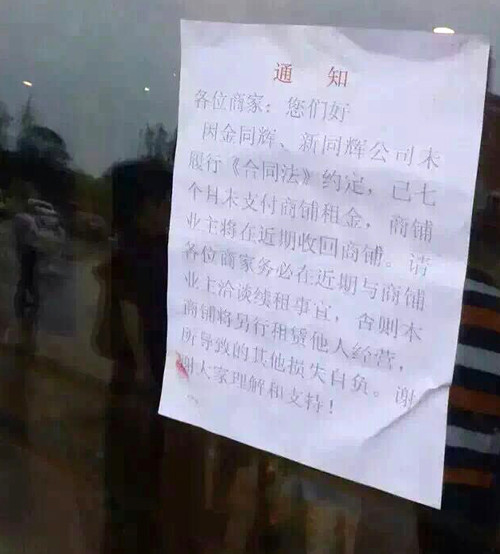 通 知
各位商家：您们好
因金同辉、新同辉公司未
履行《合同法》约定，已七
个月未支付商铺租金，商铺
业主将在近期收回商铺。请
各位商家务必在近期与商铺
业主洽谈续租事宜，否则本
商铺将另行租赁他人经营，
所导致的其他损失自负。谢
谢大家理解和支持！